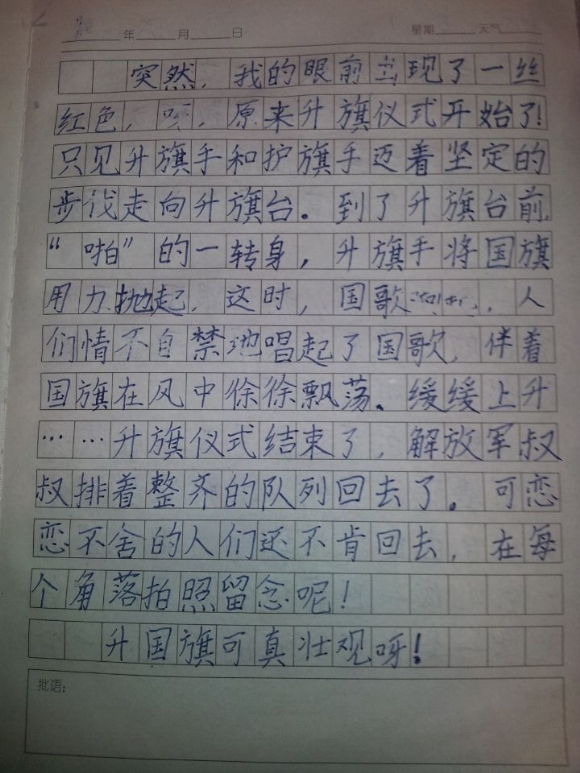 年 月 日 星期 天气
突然，我的眼前出现了一丝
红色，哦，原来升旗仪式开始了！
只见升旗手和护旗手迈着坚定的
步伐走向升旗台。到了升旗台前，
“啪”的一转身，升旗手将国旗
用力抛起，这时，国歌，人
们情不自禁地唱起了国歌，伴着
国旗在风中徐徐飘荡。缓缓上升
……升旗仪式结束了，解放军叔
叔排着整齐的队列回去了。可恋
恋不舍的人们还不肯回去，在每
个角落拍照留念呢！
升国旗可真壮观呀！
批语：